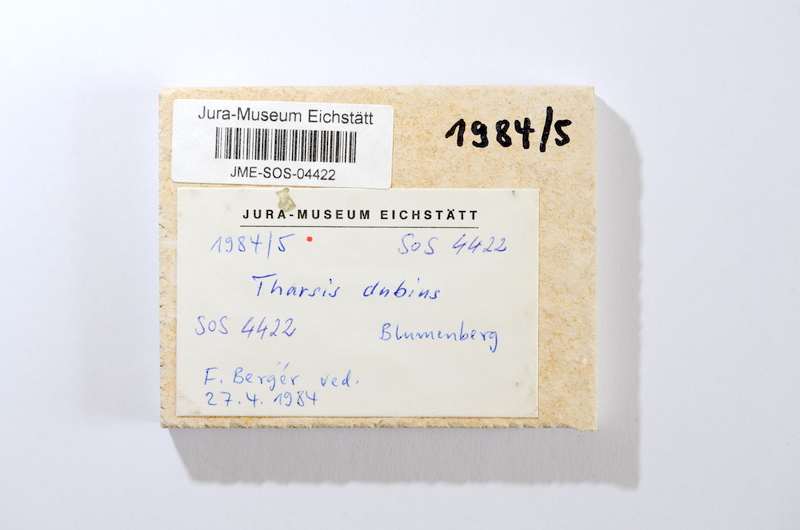 Jura-Museum Eichstätt
JME-SOS-04422
1984/5
JURA-MUSEUM EICHSTÄTT
1984/5 SOS 4422
Tharsis dubius
SOS 4422 Blumenberg
F. Bergér ved.
27.4.1984